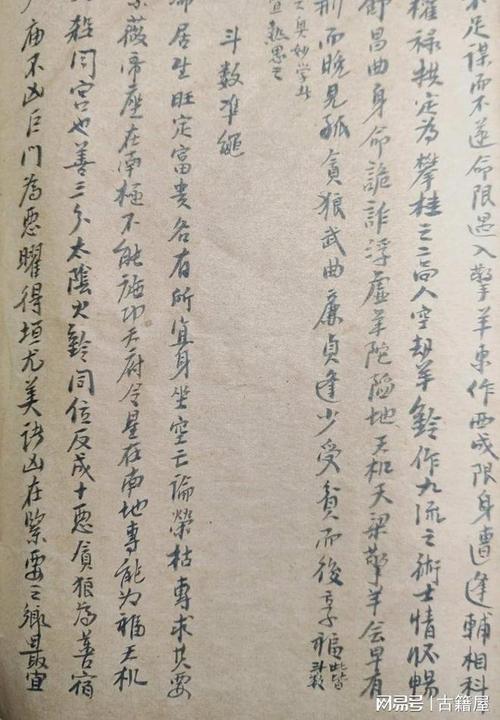 不足謀而不遂命限遇入擎羊東作西成限身遭逢輔相科
權祿拱定為攀桂之高人空劫羊鈴作九流之術士情怀暢
舒昌曲身命詭詐浮虛羊陀陷地天机天梁擎羊会早有
刑而晚見孤貪狼武曲廉貞逢少受貧而後享福此皆斗数
之奥妙学者
宜熟思之
斗数准繩
居生旺定富貴各有所宜身坐空亡論榮枯專求其要
紫薇帝座在南極不能施功天府令星在南地專能为福天机
殺同宮也善三分太陰火鈴同位反成十惡貪狼為善宿
廟不凶巨門為惡曜得垣尤美諸凶在緊要之鄉最宜
网易号 | 古籍屋